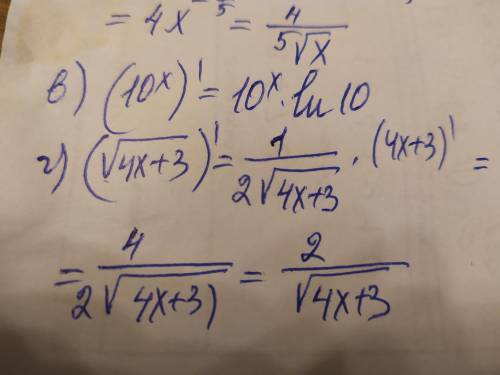 = 4x^-1/5 = 4/⁵√x
в) (10ˣ)' = 10ˣ · ln 10
г) (√4x+3)' = 1/2√4x+3 · (4x+3)' =
= 4/2√4x+3) = 2/√4x+3